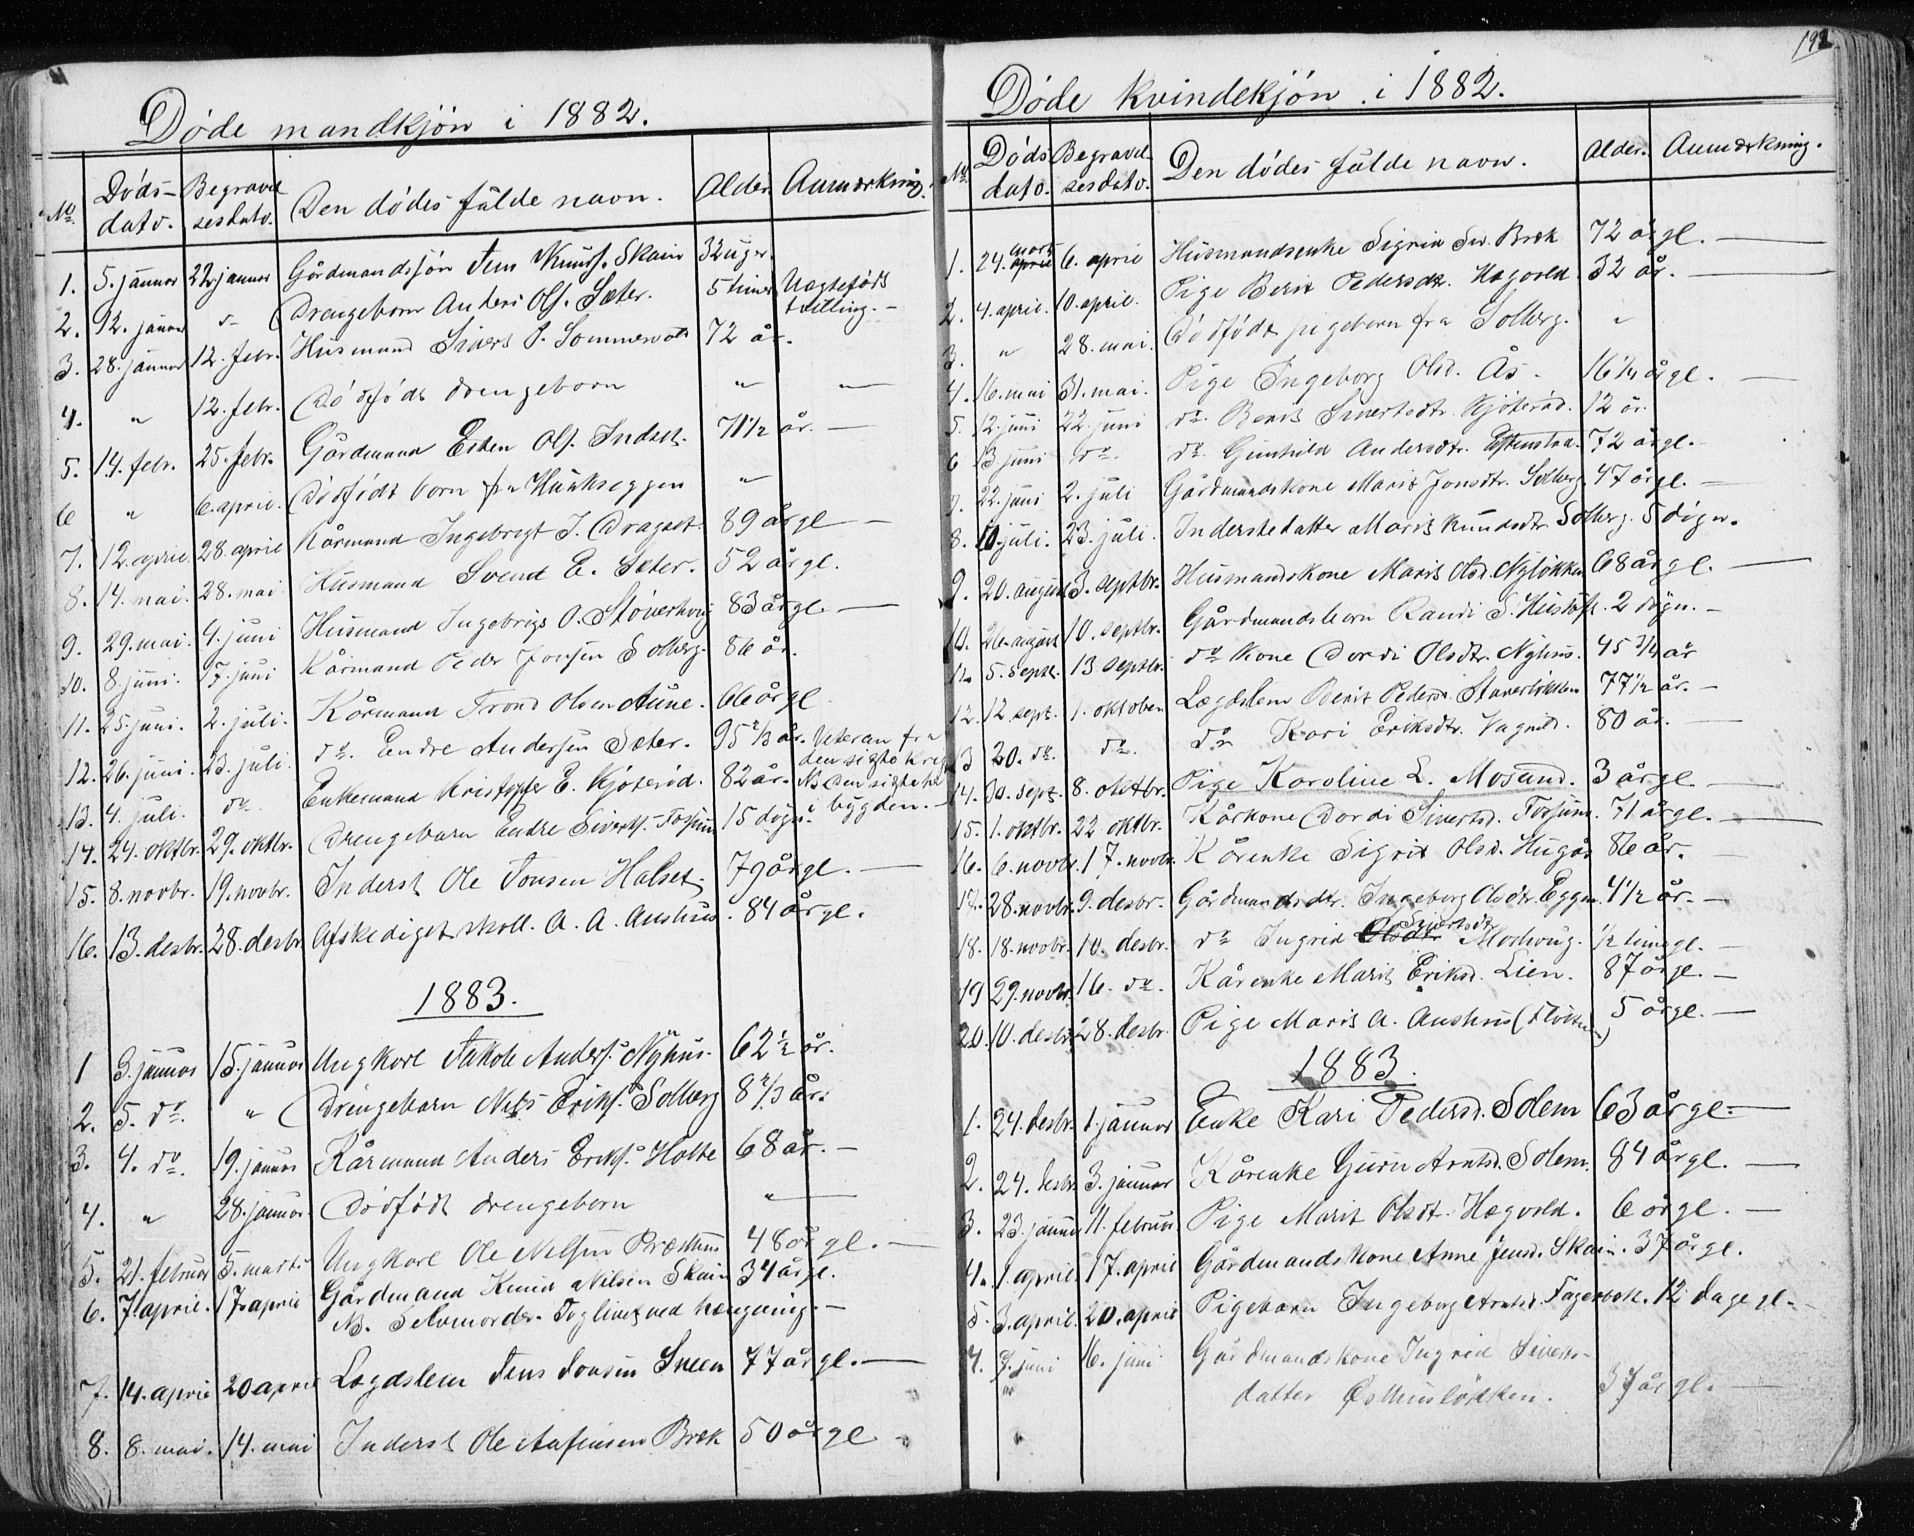 Døde mandkjön i 1882.
No. Døds-dato. Begravelsesdato. Den dødes fulde navn. Alder. Anmærkning.
1. 5. januar 22. januar Gårdmandssjön Jens Knuts. Skain 32 uger.
2. 12. januar do Drengebarn Anders Ols. Sæter. 5 timer Uægteføds tvilling. -
3. 28. januar 12. febr. Husmand Sivert O. Sommervold 72 år.
4. " 12. febr. Dødfødt drengebarn " "
5. 14. febr. 25. febr. Gårdmand Esten Ols. Indset. 71 1/2 år. -
6 " 6. april. Dødfødt barn fra Hunkseggen "
7. 12. april. 28. april Kårmand Ingebrigt J. Dragset. 89 år gl -
8. 14. mai. 28. mai Husmand Svend E. Sæter. 52 år gl.
9. 29. mai. 4. juni Husmand Ingebrigt O. Støverhaug 83 år gl. -
10. 8. juni. 17. juni Kårmand Peder Jonsen Solberg. 86 år.
11. 25. juni. 2. juli. Kårmand Trond Olsen Aune. 66 år gl
12. 26. juni. 23. juli. do. Endre Andersen Sæter. 95 2/3 år. Veteran fra den sidste krig
13. 4. juli. do Enkemand Kristofer E. Kjøterød. 82 år. NB den sidste her i bygden. -
14. 24. oktbr. 29. oktbr. Drengebarn Endre Siverts. Fossum 15 døgn.
15. 8. novbr. 19. novbr. Inderst Ole Jonsen Halset. 79 år gl. -
16. 13. desbr. 28. desbr. Afskediget skoll. A. A. Aushus. 84 år gl.
1883.
1 3. januar 15. januar Ungkarl Jakob Anders. Nyhus. 62 1/2 år.
2. 5. do. " Drengebarn Nils Eriks. Solberg 8 2/3 år.
3. 4. do. 19. januar Kårmand Anders Eriks. Holte 68 år. -
4. " 28. januar. Dødfødt drengebarn "
5. 21. februar 5. marts Ungkarl Ole Nilsen Præsthus 48 år gl. -
6. 7. april. 17. april Gårdmand Knud Nilsen Skain 34 år gl.
NB. Selvmorder. Tog livet ved hængning. -
7. 14. april 20 april Lægdslem Jens Jonsen Sneen 77 år gl. -
8. 8. mai. 14. mai Inderst Ole Anfinsen Bræk 50 år gl -
192
Døde kvindekjön i 1882.
No. Døds dato. Begravelsesdato. Den dødes fulde navn. Alder. Anmærkning.
1. 24. marts april 6. april Husmandsenke Sigrid Sv. Bræk 72 år gl. -
2. 4. april. 10. april. Pige Berit Pedersdtr. Hægvold 32 år. -
3. " 28. mai. Dødfødt pigebarn fra Solberg. "
4. 16. mai 31. mai. Pige Ingeborg Olsd. Ås. 16 1/4 år gl. -
5. 12. juni 22. juni do. Berit Sivertsdtr. Kjøterød. 12 år.
6 13 juni do. do. Gunhild Andersdtr. 72 år gl. -
7. 22. juni 2. juli Gårdmandskone Marit Jonsdtr. Solberg. 47 år gl. -
8. 10. juli. 23. juli. Inderstedatter Marit Knudsdtr Solberg. 5 døgn.
9. 20. august 3. septbr. Husmandskone Marit Olsd. Nyløkken 68 år gl. -
10. 26. august 10. septbr. Gårdmandsbarn Randi S. 2 døgn. -
11. 5. sept. 13 septbr. do kone Dordi Olsdtr. Nyhus. 45 3/4 år
12. 12. sept. 1. oktober Lægdslem Berit Pedersd. Staverløkken 77 1/2 år. -
13 20. do. do. do Kari Eriksdtr. Vagnild. 80 år. -
14. 30. sept. 8. oktbr. Pige Karoline L. Mosand. 3 år gl -
15. 1. oktbr. 22 oktbr. Kårkone Dordi Sivertsd. Fossum. 71 år gl. -
16. 6. novbr. 17. novbr. Kårenke Sigrit Olsd. Hugås 86 år.
17. 28. novbr. 9. desbr. Gårdmandsdtr. Ingeborg Olsdtr. Eggen. 4 1/2 år. -
18. 18. novbr. 10. desbr. do Ingrid Olsdtr Sivertsdtr Mohaug. 1/2 time gl. -
19 29. novbr. 16. do. Kårenke Marit Eriksd. Lien. 87 år gl. -
20. 10. desbr. 28. desbr. Pige Marit A. Aushus (Flotten) 5 år gl. -
1883.
1. 24. desbr. 1. januar Enke Kari Pedersd. Solem 63 år gl. -
2. 24. desbr. 3. januar Kårenke Guru Arntsd. Solem. 84 år gl. -
3. 23. januar 11. februar Pige Marit Olsdt. Hægvold. 6 år gl. -
4. 1. april. 17. april Gårdmandskone Anne Jensd. Skain. 37 år gl.
5. 3. april. 20. april Pigebarn Ingeborg Arntsd. Fagerbæk. 12 dage gl. -
7. 7. juni 16. juni Gårdmandskone Ingrid Siverts-
datter Østhusløkken. 37 år gl. -